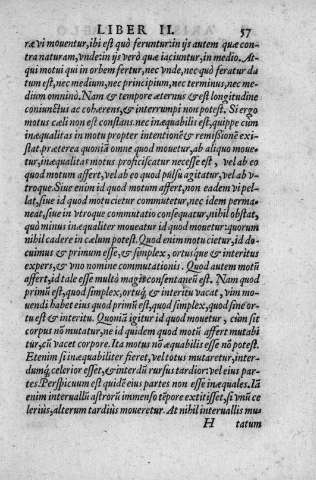 LIBER II. 57
ræ vi mouentur, ibi est quò feruntur: in ijs autem quæ con
tra naturam, vnde: in ijs verò quæ iaciuntur, in medio. At-
qui motui qui in orbem fertur, nec vnde, nec quò feratur da
tum est, nec medium, nec principium, nec terminus, nec me-
dium omninò. Nam & tempore æternus & est longitudine
coniunctus ac cohærens, & interrumpi non potest. Si ergo
motus cæli non est constans. nec inæquabilis est, quippe cùm
inæqualitas in motu propter intentionē & remißionē exi-
stat. præterea quoniā omne quod mouetur, ab aliquo moue-
tur, inæqualitas motus proficiscatur necesse est, vel ab eo
quod motum affert, vel ab eo quod pulsu agitatur, vel ab v-
troque. Siue enim id quod motum affert, non eadem vi pel-
lat, siue id quod motu cietur commutetur, nec idem perma-
neat, siue in vtroque commutatio consequatur, nihil obstat,
quò minus inæqualiter moueatur id quod mouetur: quorum
nihil cadere in cælum potest. Quod enim motu cietur, id do-
cuimus & primum esse, & simplex, ortusque & interitus
expers, & vno nomine commutationis. Quod autem motū
affert, id tale esse multò magis consentaneū est. Nam quod
primū est, quod simplex, ortuq́, & interitu vacat, vim mo-
uendi habet eius quod primū est, quod simplex, quod sine or-
tu est & interitu. Quoniā igitur id quod mouetur, cùm sit
corpus nō mutatur, ne id quidem quod motū affert mutabi
tur, cū vacet corpore. Ita motus nō æquabilis esse nō potest.
Etenim si inæquabiliter fieret, vel totus mutaretur, inter-
dumq́, celerior esset, & interdū rursus tardior: vel eius par-
tes. Perspicuum est quidē eius partes non esse inæquales. Iā
enim interuallū astrorū immenso tēpore extitisset, si vnū ce
leriùs, alterum tardiùs moueretur. At nihil interuallis mu-
H tatum